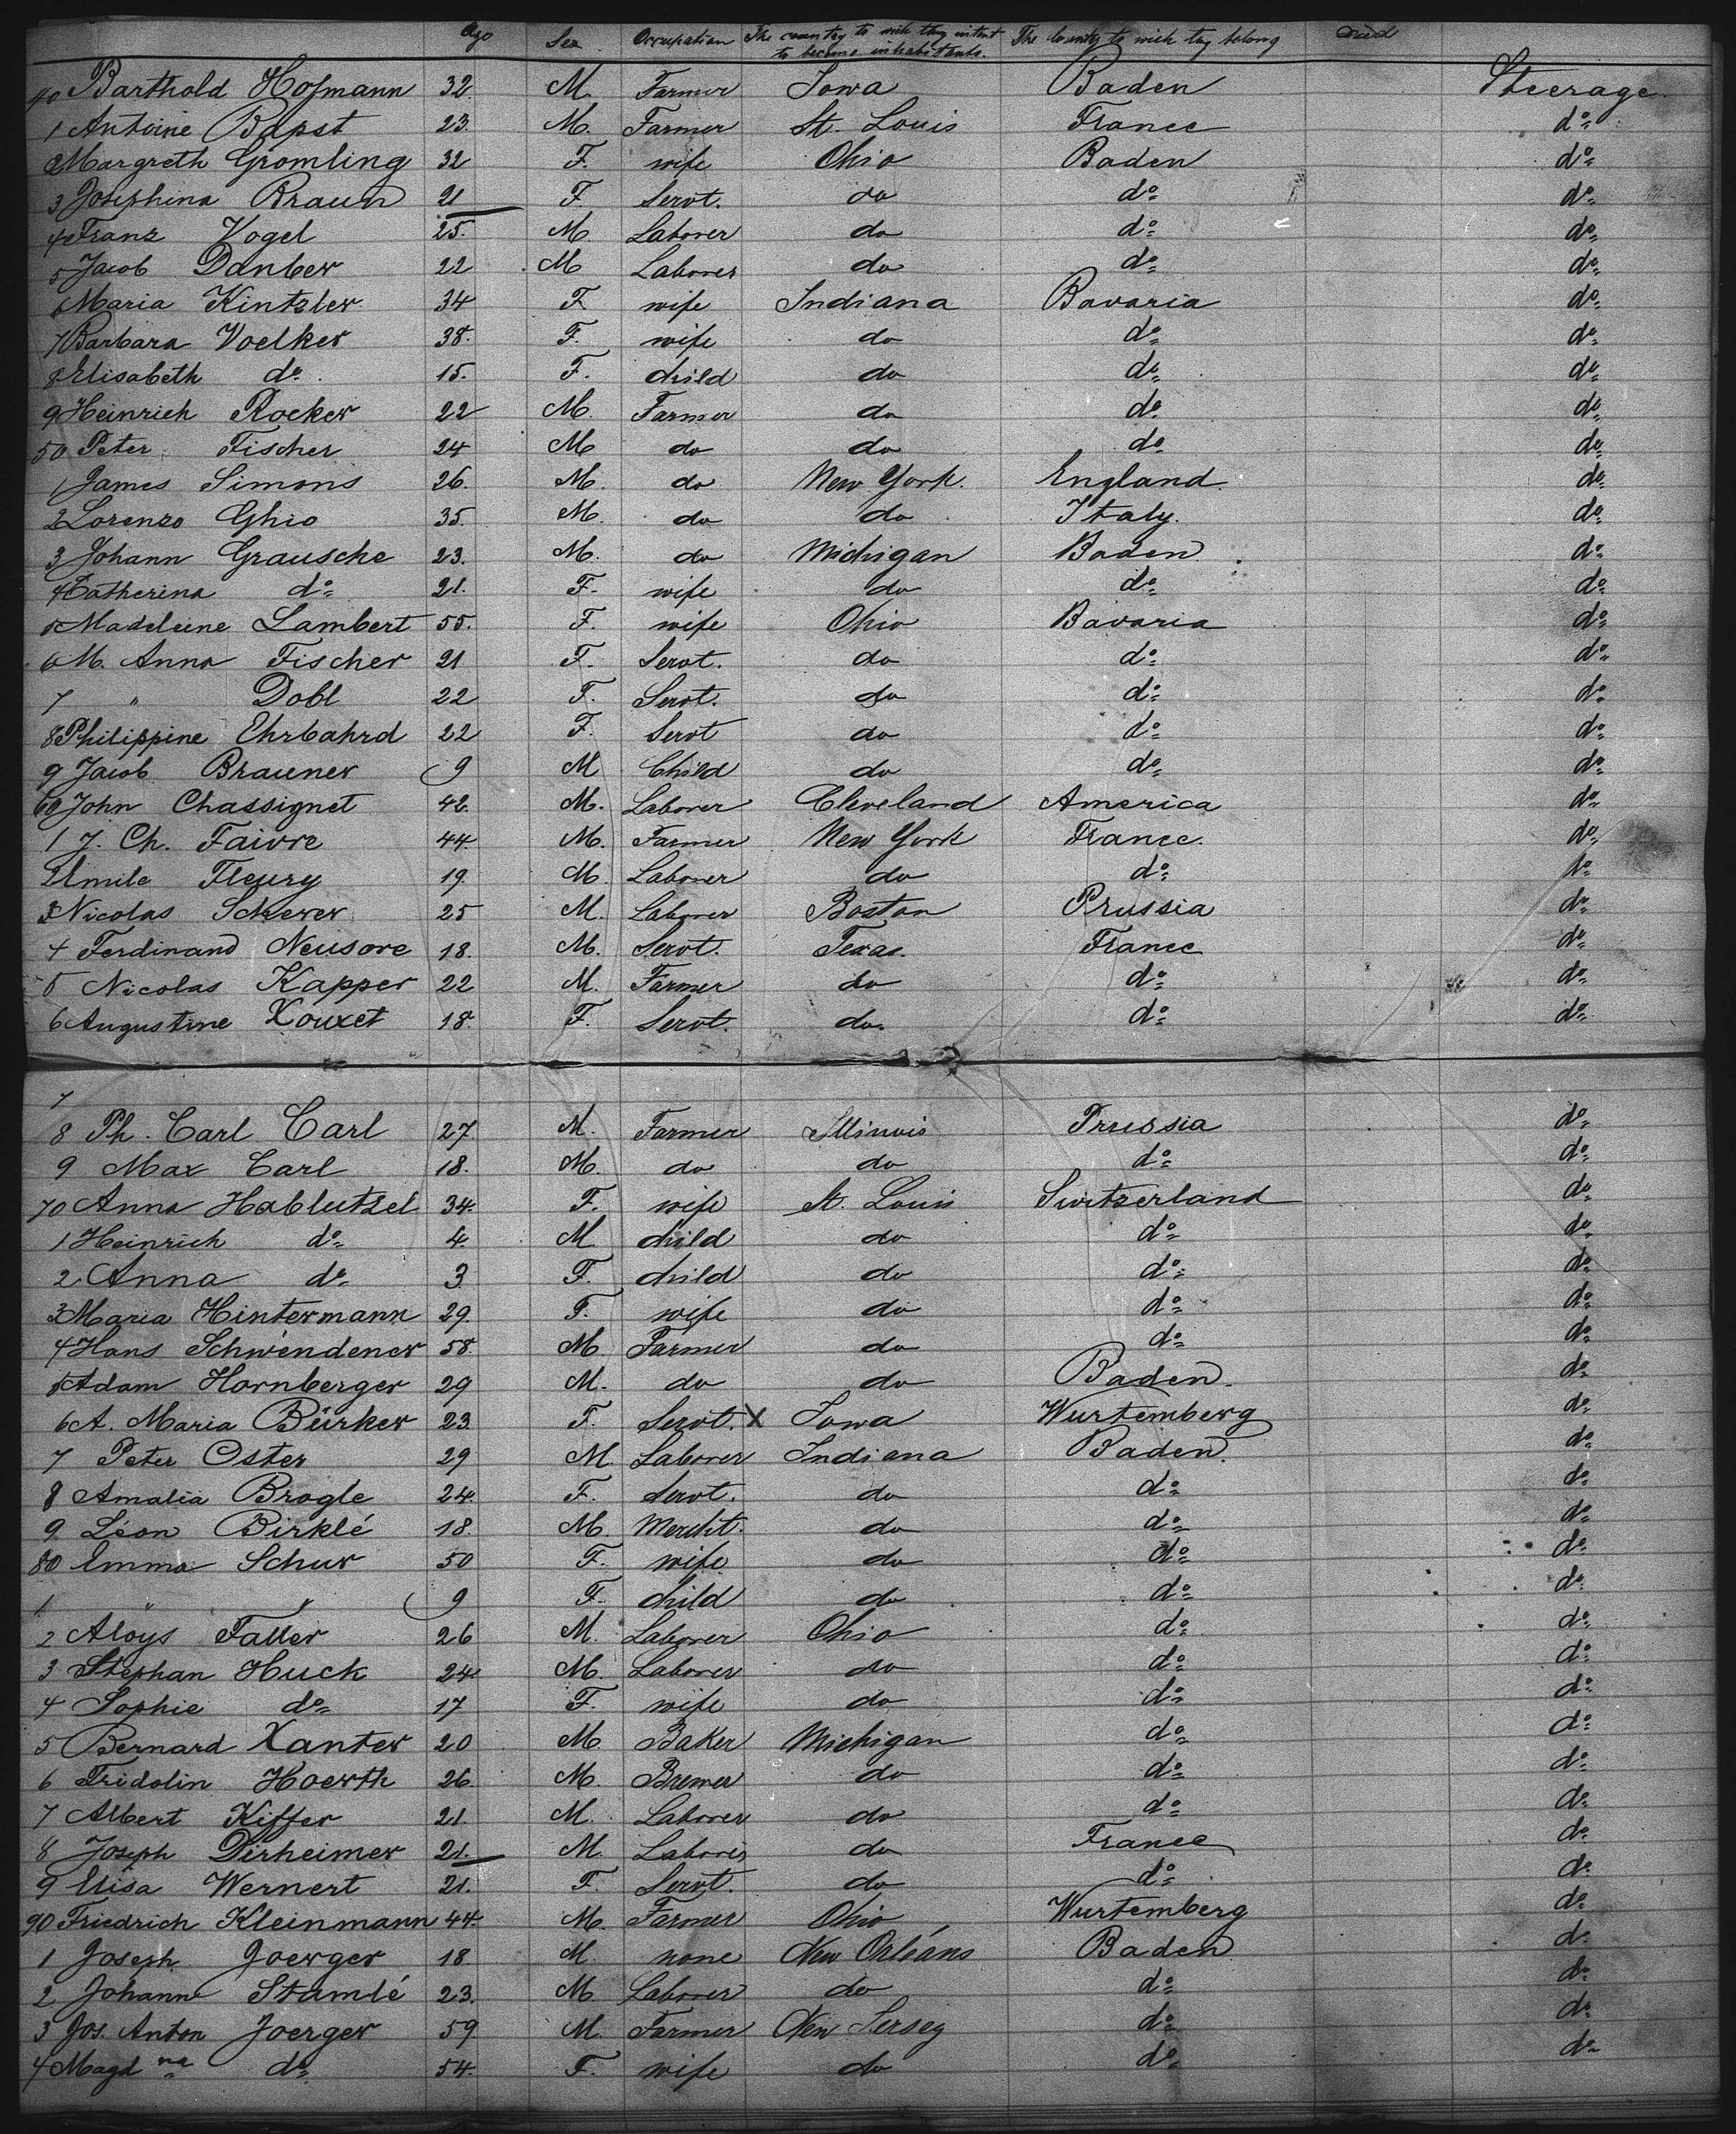 Age Sex Occupation The country to wich they intent to become inhabitants. The Country to wich they belong Died
40 Barthold Hofmann 32. M. Farmer Iowa Baden Steerage.
1 Antoine Bapst 23. M. Farmer St. Louis France do
2 Margreth Gromling 32 F. wife Ohio Baden do
3 Josephina Braun 21 F. Servt. do do do
4 Franz Vogel 25. M. Laborer do do do
5 Jacob Danber 22 M Laborer do do do
6 Maria Kintzler 34 F. wife Indiana Bavaria do
7 Barbara Voelker 38. F. wife do do do
8 Elisabeth do 15. F. child do do do
9 Heinrich Rocker 22 M. Farmer do do do
50 Peter Fischer 24 M do do do do
1 James Simons 26. M. do New York. England do
2 Lorenzo Ghio 35. M. do do Italy. do
3 Johann Grausche 23. M. do Michigan Baden do
4 Catherina do 21. F. wife do do do
5 Madeleine Lambert 55. F. wife Ohio Bavaria do
6 M. Anna Fischer 21 F. Servt. do do do
7 " Dobl 22 F. Servt. do do do
8 Philippine Ehrbahrd 22 F. Servt do do do
9 Jacob Brauner 9 M Child do do do
60 John Chassignet 42. M. Laborer Cleveland America do
1 J. Ch. Faivre 44. M. Farmer New York France. do
2 Emile Fleury 19. M. Laborer do do do
3 Nicolas Scherer 25 M. Laborer Boston Prussia do
4 Ferdinand Neusore 18. M. Servt. Texas. France do
5 Nicolas Kapper 22 M. Farmer do do do
6 Augustine Xouxet 18. F. Servt. do. do do
7
8 Ph. Carl Carl 27 M. Farmer Illinois Prussia do
9 Max Carl 18. M. do do do do
70 Anna Hablutzel 34. F. wife St. Louis Switzerland do
1 Heinrich do 4. M child do do do
2 Anna do 3 F. child do do do
3 Maria Hintermann 29. F. wife do do do
4 Hans Schwendener 58. M. Farmer do do do
5 Adam Hornberger 29 M. do do Baden. do
6 A. Maria Bürker 23. F. Servt. X Iowa Wurtemberg do
7 Peter Oster 29 M. Laborer Indiana Baden. do
8 Amalia Brogle 24. F. Servt. do do do
9 Léon Birklé 18. M. Mercht. do do do
80 Emma Schur 50 F. wife do do do
1 " " 9 F. child do do do
2 Aloys Faller 26 M. Laborer Ohio do do
3 Stephan Huck 24 M. Laborer do do do
4 Sophie do 17 F. wife do do do
5 Bernard Xanter 20 M. Baker Michigan do do
6 Fridolin Hoerth 26. M. Brewer do do do
7 Albert Kiffer 21. M. Laborer do do do
8 Joseph Dirheimer 21. M. Laborer do France do
9 Elisa Wernert 21. F. Servt. do do do
90 Friedrich Kleinmann 44. M. Farmer Ohio Wurtemberg do
1 Joseph Joerger 18. M. none New Orléans Baden do
2 Johann Stamlé 23. M. Laborer do do do
3 Jos. Anton Joerger 59 M. Farmer New Jersey do do
4 Magdna do 54. F. wife do do do